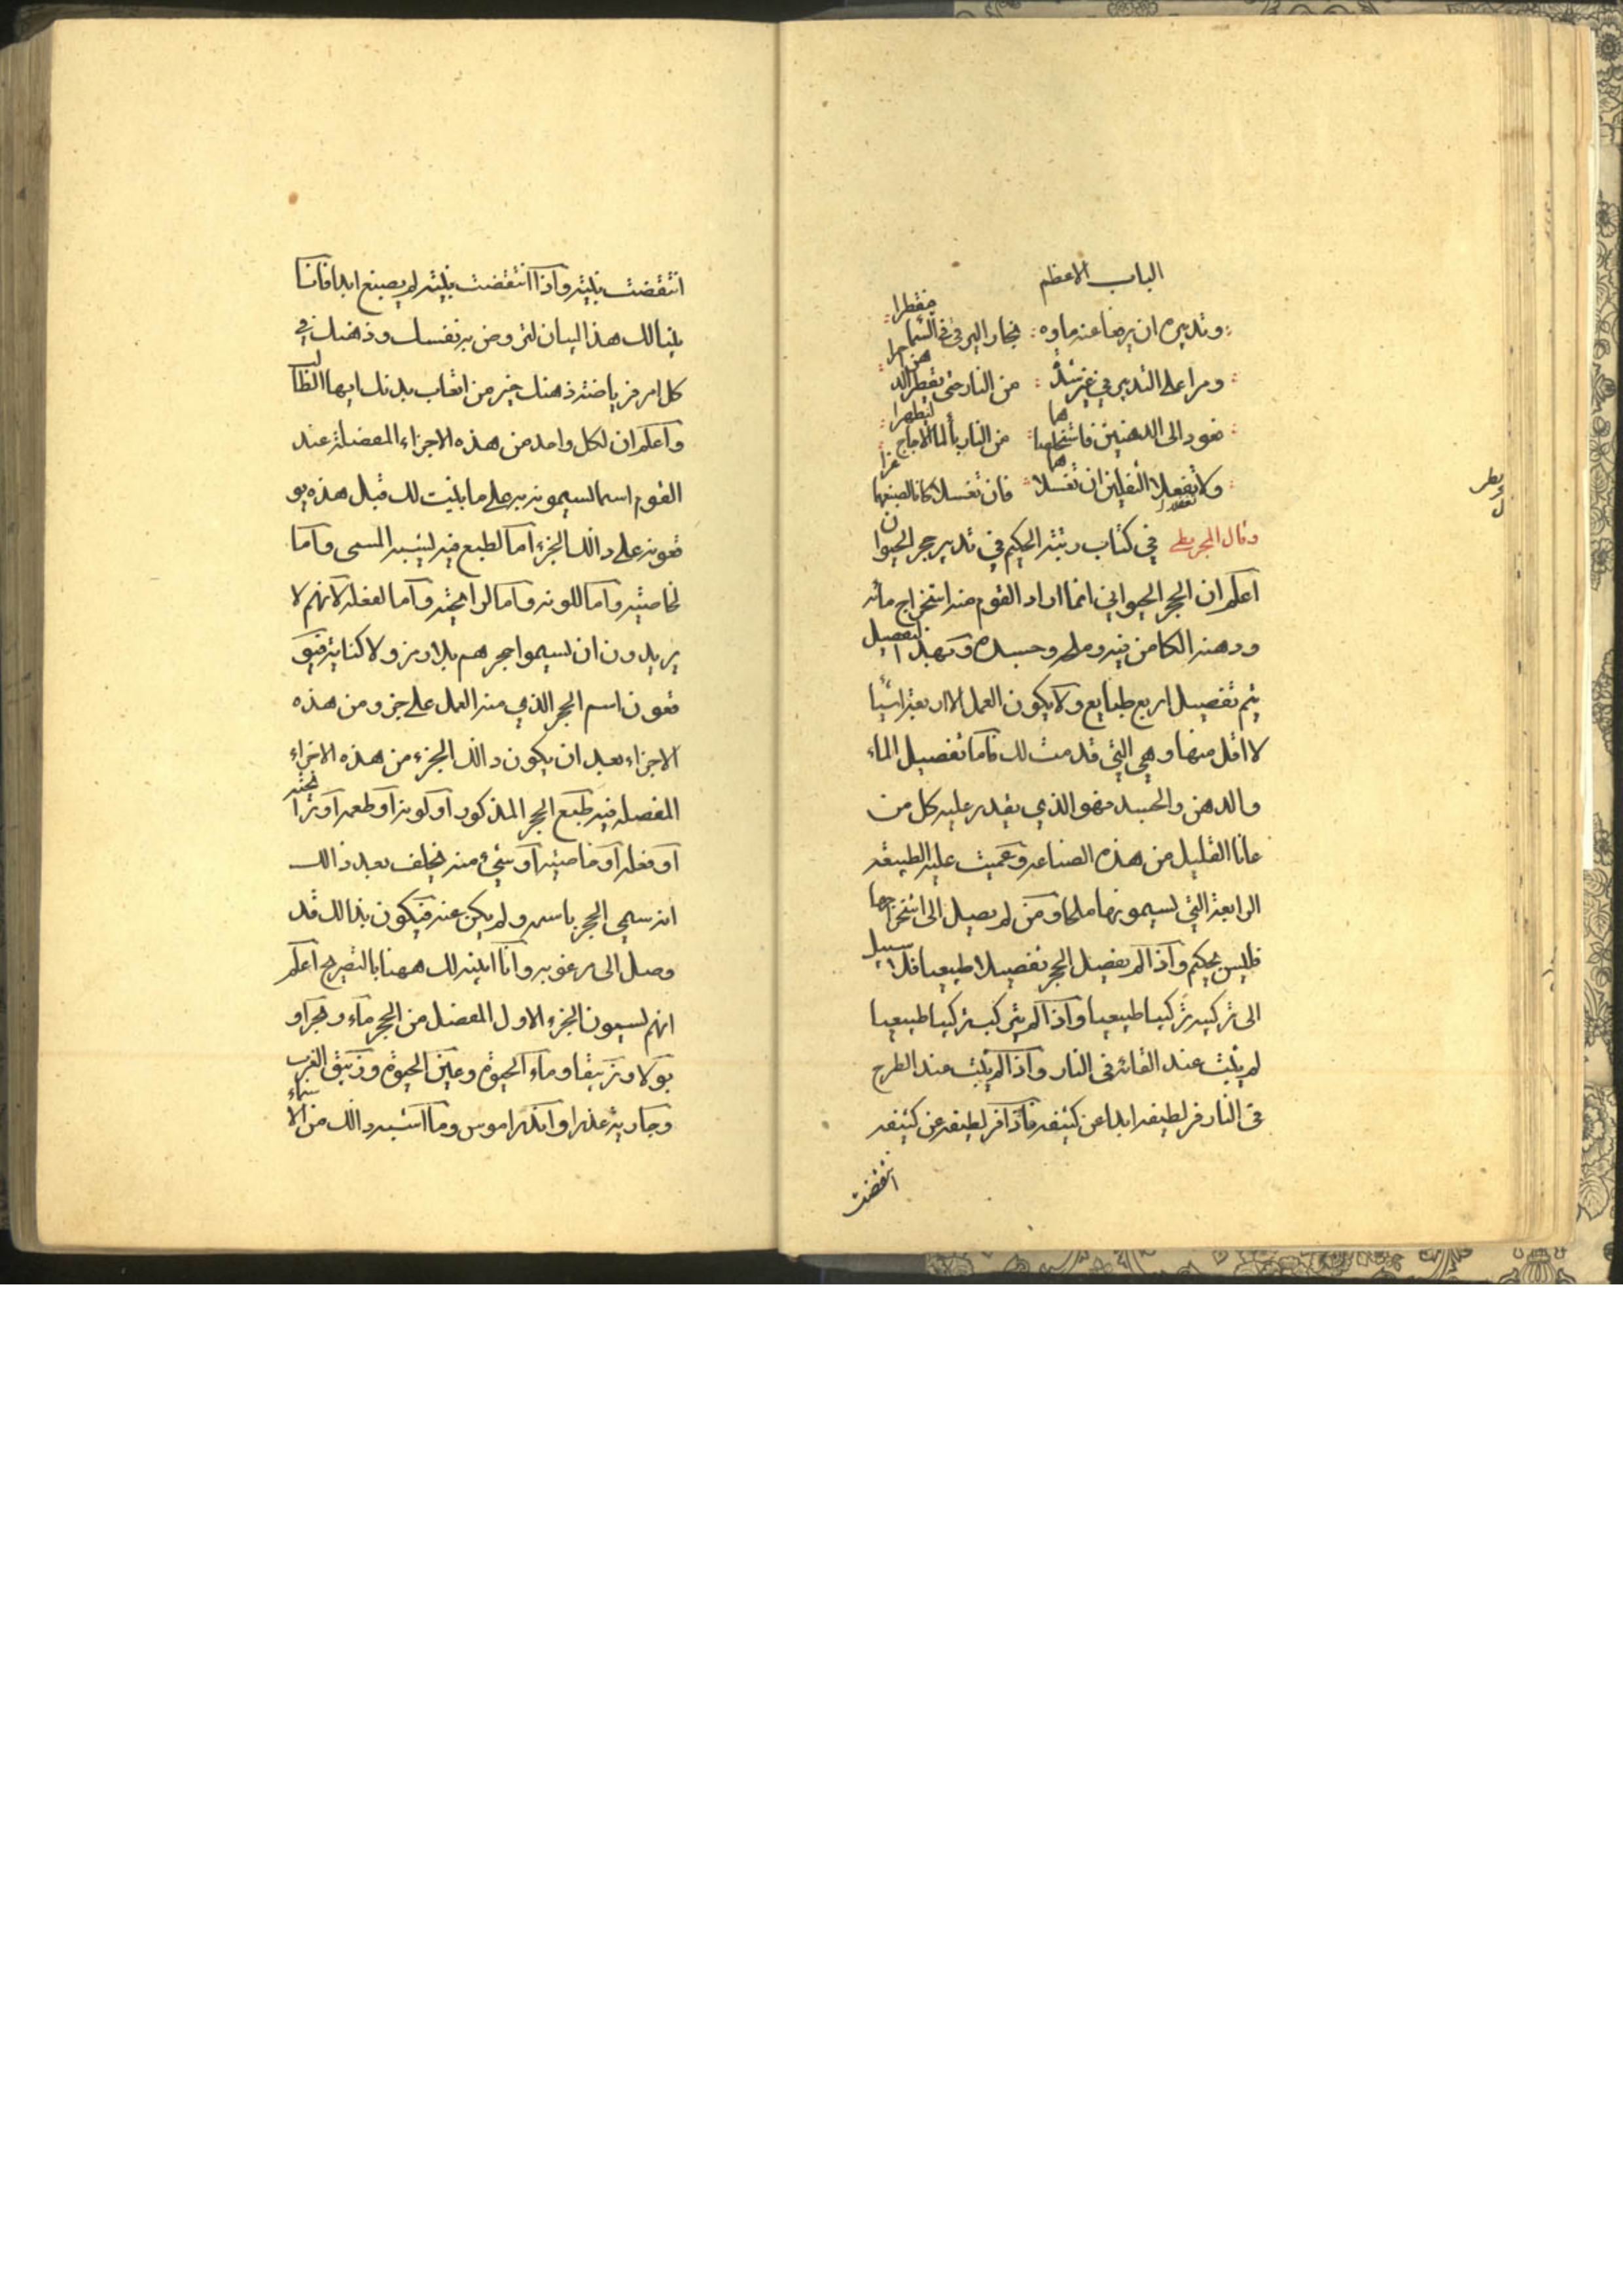 الباب الاعظم
وتدبيره ان يرفعا عنه ماوه بخار اليرقى فى السما مقطرا
ومرا على التدبير في غير شدة من النار حتى يقطر الدهن احمرا
فعود الى الدهنين فاستخلصاهما من النار بألما الاجاج ليطهرا
ولا تغفلا الثفلين ان تغسلاهما فان تغسلا كانا لصبغهما
وقال المجريطي في كتاب رتبة الحكيم في تدبير حجر الحيوان
اعلم ان الحجر الحيواني انما اراد القوم منه استخراج مائه
ودهنه الكامن فيه وملحه وجسده وبهذا التفصيل
يتم تفصيل اربع طبايع ولا يكون العمل الا اربعة اشيا
لا اقل منها وهي التي قدمت لك فاما تفصيل الماء
والدهن والجسد فهو الذي يقدر عليه كل من
عانا القليل من هذه الصناعه وعميت عليه الطبيعه
الرابعة التي يسمونها ملحا ومن لم يصل الى استخراجها
فليس بحكيم واذا لم يفصل الحجر تفصيلا طبيعيا فلا سبيل
الى تركيبه تركيبا طبيعيا واذا لم يتركب تركيبا طبيعيا
لم يثبت عند القائه في النار واذا لم يثبت عند الطرح
في النار فر لطيفه ابدا عن كثيفه فاذا فر لطيفه عن كثيفه
انتقضت
انتقضت بنيته واذا انتقضت بنيته لم يصبغ ابدا فانا
بينا لك هذا البيان لتروض به نفسك وذهنك في
كل امر فرياضة ذهنك خير من اتعاب بدنك ايها الطالب
واعلم ان لكل واحد من هذه الاجزاء المفصلة عند
القوم اسما يسمونه به على ما بينت لك قبل هذه يو
قعونه على ذالك الجزء اما لطبع فيه يشبه المسمى واما
لخاصيته واما للونه واما لرائحته واما لفعله لانهم لا
يريدون ان يسموا حجرهم بلا رمز ولا كناية فيو
قعون اسم الحجر الذي منه العمل على جزو من هذه
الاجزاء بعد ان يكون ذالك الجزء من هذه الاجزاء
المفصله فيه طبع الحجر المذكور او لونه او طعمه او رائحته
او فعله او خاصيته او شيء منه فيحلف بعد ذالك
انه سمي الحجر باسمه ولم يكن عنه فيكون بذالك قد
وصل الى مرغوبه وانا ابينه لك ههنا بالتصريح اعلم
انهم يسمون الجزء الاول المفصل من الحجر ماء و او
بولا وزيبقا وماء الحيوة وعين الحيوة وزيبق الغرب
وجارية عذرا وما اشبه ذالك من الاسماء